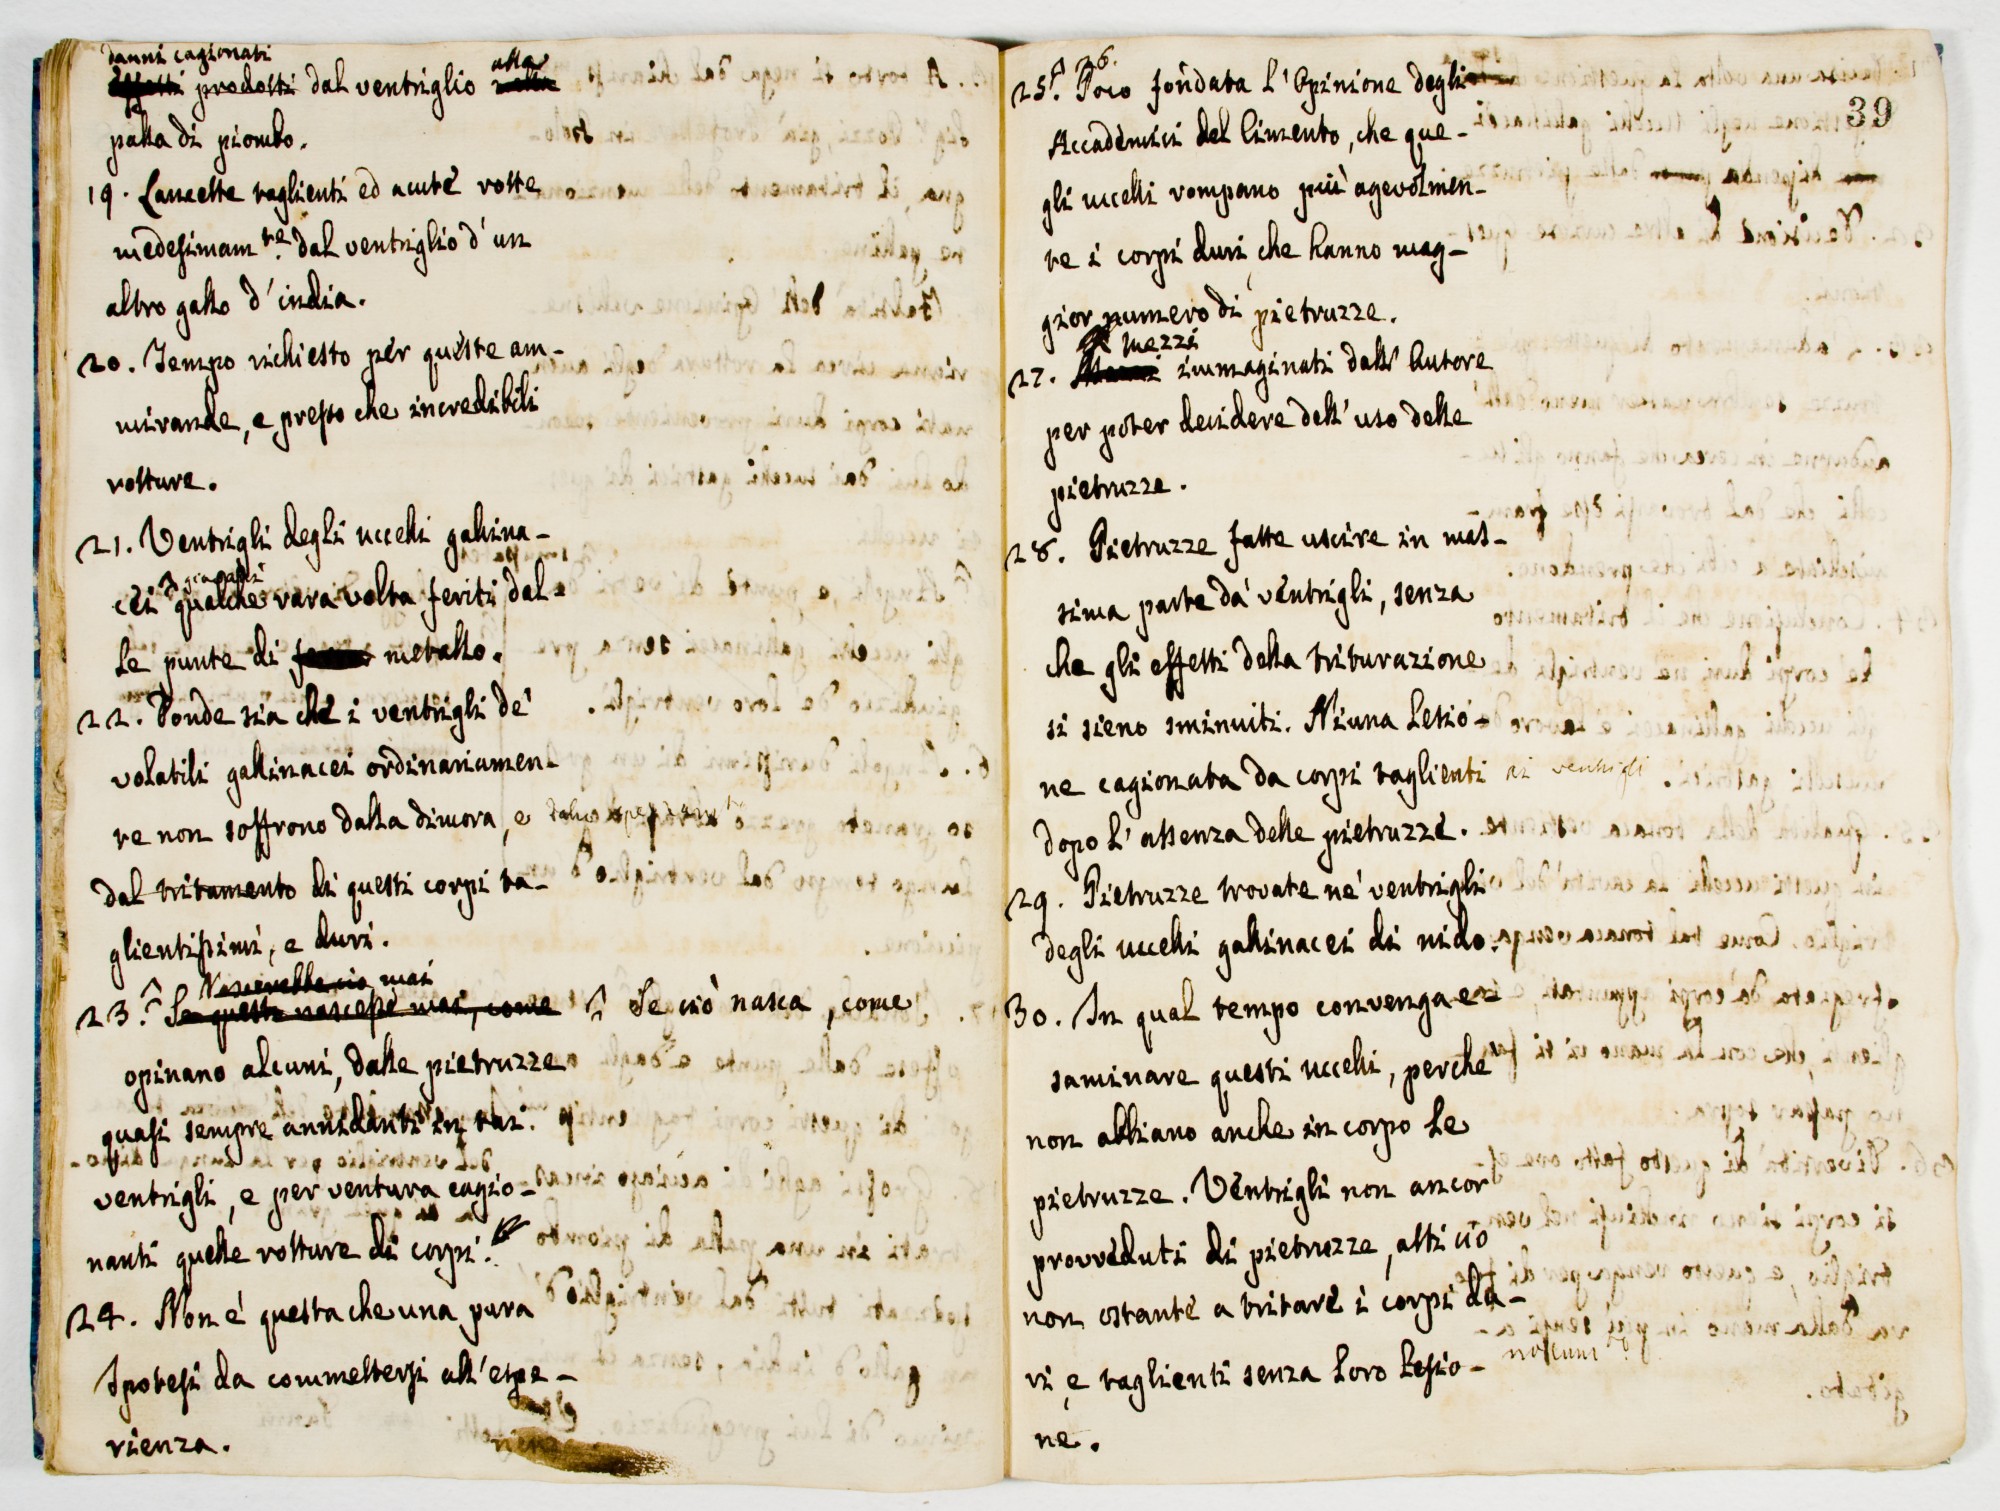 danni cagionati
prodotti dal ventriglio alla
palla di piombo.
19. Lancette taglienti ed acute rotte
medesimam.te dal ventriglio d'un
altro gallo d'india.
20. Tempo richiesto per queste am-
mirande, e presso che incredibili
rotture.
21. Ventrigli degli uccelli gallina-
cei qualche rara volta feriti dal-
le punte di metallo.
22. Donde sia che i ventrigli de'
volatili gallinacei ordinariamen-
te non soffrono dalla dimora, e
dal tritamento di questi corpi ta-
glientissimi, e duri.
Nascerebbe cio mai
23. Se questo nascesse mai, come Se ciò nasca, come
opinano alcuni, dalle pietruzze
quasi sempre annidanti in tai
ventrigli, e per ventura cagio-
nanti quelle rotture di corpi.
24. Non è questa che una pura
Ipotesi da commettersi all'espe-
rienza.
39
26.
25. Poco fondata l'Opinione degli
Accademici del Cimento, che que-
gli uccelli rompano più agevolmen-
te i corpi duri che hanno mag-
gior numero di pietruzze.
Mezzi
27. immaginati dall'Autore
per poter decidere dell'uso delle
pietruzze.
28. Pietruzze fatte uscire in mas-
sima parte da' ventrigli, senza
che gli effetti della triturazione
si sieno sminuiti. Niuna lesio-
ne cagionata da corpi taglienti ai ventrigli
dopo l'assenza delle pietruzze.
29. Pietruzze trovate ne' ventrigli
degli uccelli gallinacei di nido.
30. In qual tempo convenga e-
saminare questi uccelli, perchè
non abbiano anche in corpo le
pietruzze. Ventrigli non ancor
provveduti di pietruzze, atti ciò
non ostante a tritare i corpi du-
ri, e taglienti senza loro lesio-
ne.